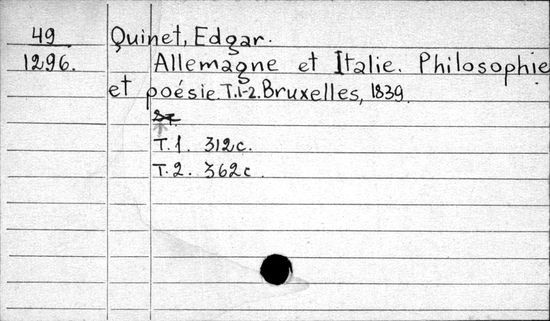 49 Quinet, Edgar.
1296. Allemagne et Italie. Philosophie
et poésie. T.1-2. Bruxelles, 1839.
T.1. 312c.
T.2. 362c.